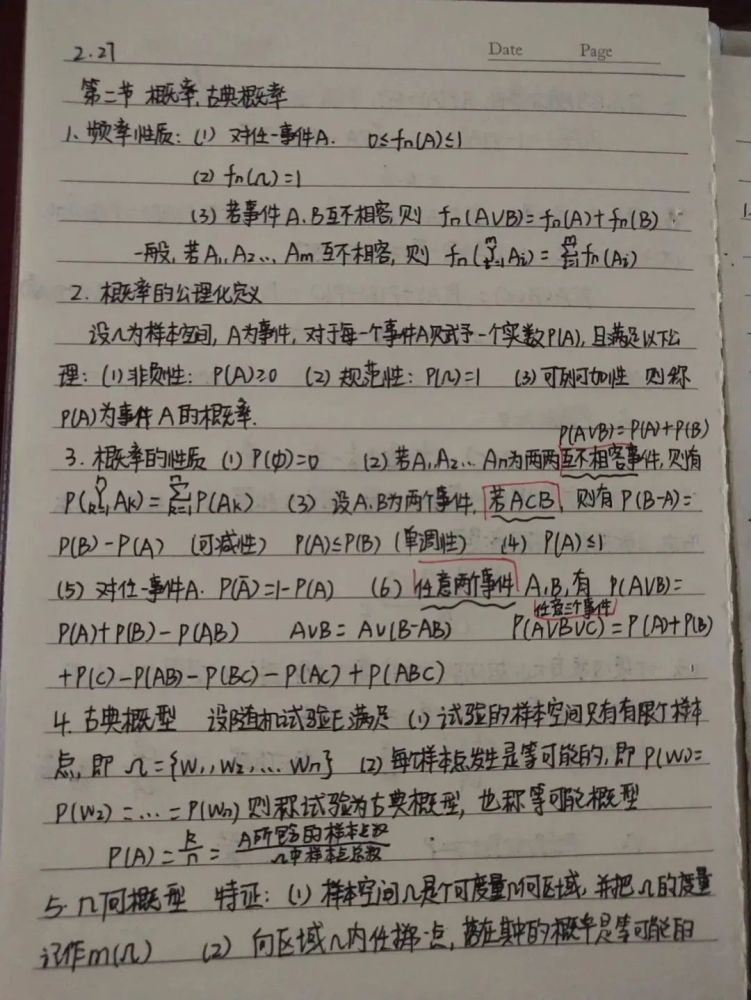 2.27
Date Page
第二节 概率, 古典概率
1. 频率性质: (1) 对任一事件A. 0≤fn(A)≤1
(2) fn(Ω)=1
(3) 若事件A.B互不相容, 则 fn(A∪B)=fn(A)+fn(B)
一般, 若A₁, A₂…, Am 互不相容, 则 fn(⋃ᵐᵢ₌₁Ai)=∑ᵐᵢ₌₁fn(Ai)
2. 概率的公理化定义
设Ω为样本空间, A为事件, 对于每一个事件A赋予一个实数P(A), 且满足以下公
理: (1) 非负性: P(A)≥0 (2) 规范性: P(Ω)=1 (3) 可列可加性 则称
P(A)为事件A的概率.
P(A∪B)=P(A)+P(B)
3. 概率的性质 (1) P(φ)=0 (2) 若A₁A₂… An为两两互不相容事件, 则有
P(⋃ⁿₖ₌₁Ak)=∑ⁿₖ₌₁P(Ak) (3) 设A.B为两个事件, 若A⊂B, 则有 P(B-A)=
P(B)-P(A) (可减性) P(A)≤P(B) (单调性) (4) P(A)≤1
(5) 对任一事件A. P(Ā)=1-P(A) (6) 任意两个事件 A,B, 有 P(A∪B)=
任意三个事件
P(A)+P(B)-P(AB) A∪B=A∪(B-AB) P(A∪B∪C)=P(A)+P(B)
+P(C)-P(AB)-P(BC)-P(AC)+P(ABC)
4. 古典概型 设随机试验E满足 (1) 试验的样本空间只有有限个样本
点, 即 Ω={W₁, W₂, … Wn} (2) 每个样本点发生是等可能的, 即 P(W₁)=
P(W₂)=…=P(Wn) 则称试验为古典概型, 也称等可能概型
P(A)=k/n=A所包含的样本点数/Ω中样本点总数
5. 几何概型 特征: (1) 样本空间Ω是个可度量几何区域, 并把Ω的度量
记作m(Ω) (2) 向区域Ω内任掷一点, 落在其中的概率是等可能的